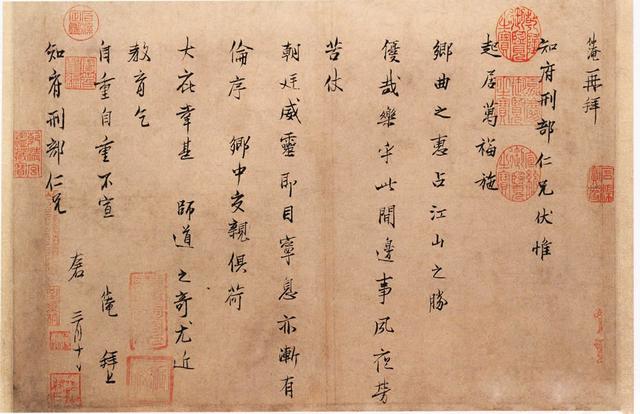 淹再拜
知府刑部仁兄伏惟
起居萬福施
鄉曲之惠占江山之勝
優哉樂乎此間邊事夙夜勞
苦仗
朝廷威靈即目寧息亦漸有
倫序鄉中交親俱荷
大庇幸甚師道之奇尤近
教育乞
自重自重不宣 淹拜上
知府刑部仁兄 三月十